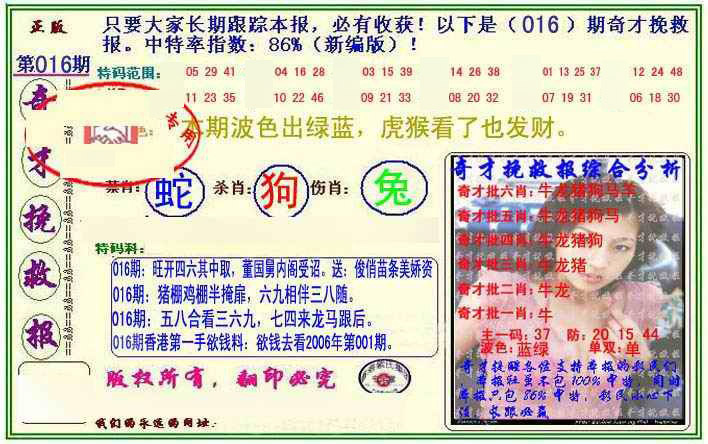 正版
只要大家长期跟踪本报，必有收获！以下是（016）期奇才挽救
报。中特率指数：86%（新编版）！
第016期
奇才挽救报
特码范围：
05 29 41 04 16 28 03 15 39 14 26 38 01 13 25 37 12 24 48
11 23 35 10 22 46 09 21 33 08 20 32 07 19 31 06 18 30
专用
色：本期波色出绿蓝，虎猴看了也发财。
禁肖：蛇 杀肖：狗 伤肖：兔
特码科：
016期：旺开四六其中取，董国舅内阁受诏。送：俊俏苗条美娇资
016期：猪棚鸡棚半掩扉，六九相伴三八随。
016期：五八合看三六九，七四来龙马跟后。
016期香港第一手欲钱料：欲钱去看2006年第001期。
版权所有，翻印必究
我们的永远的网址：
奇才挽救报综合分析
奇才批六肖：牛龙猪狗马羊
奇才批五肖：牛龙猪狗马
奇才批四肖：牛龙猪狗
奇才批三肖：牛龙猪
奇才批二肖：牛龙
奇才批一肖：牛
主一码：37 防：20 15 44
波色：蓝绿 单双：单
奇才提醒各位支持本报的彩民们
本报社虽不包100%中特，但时
本报只包86%中特，彩民小心下
注，长跟必赢